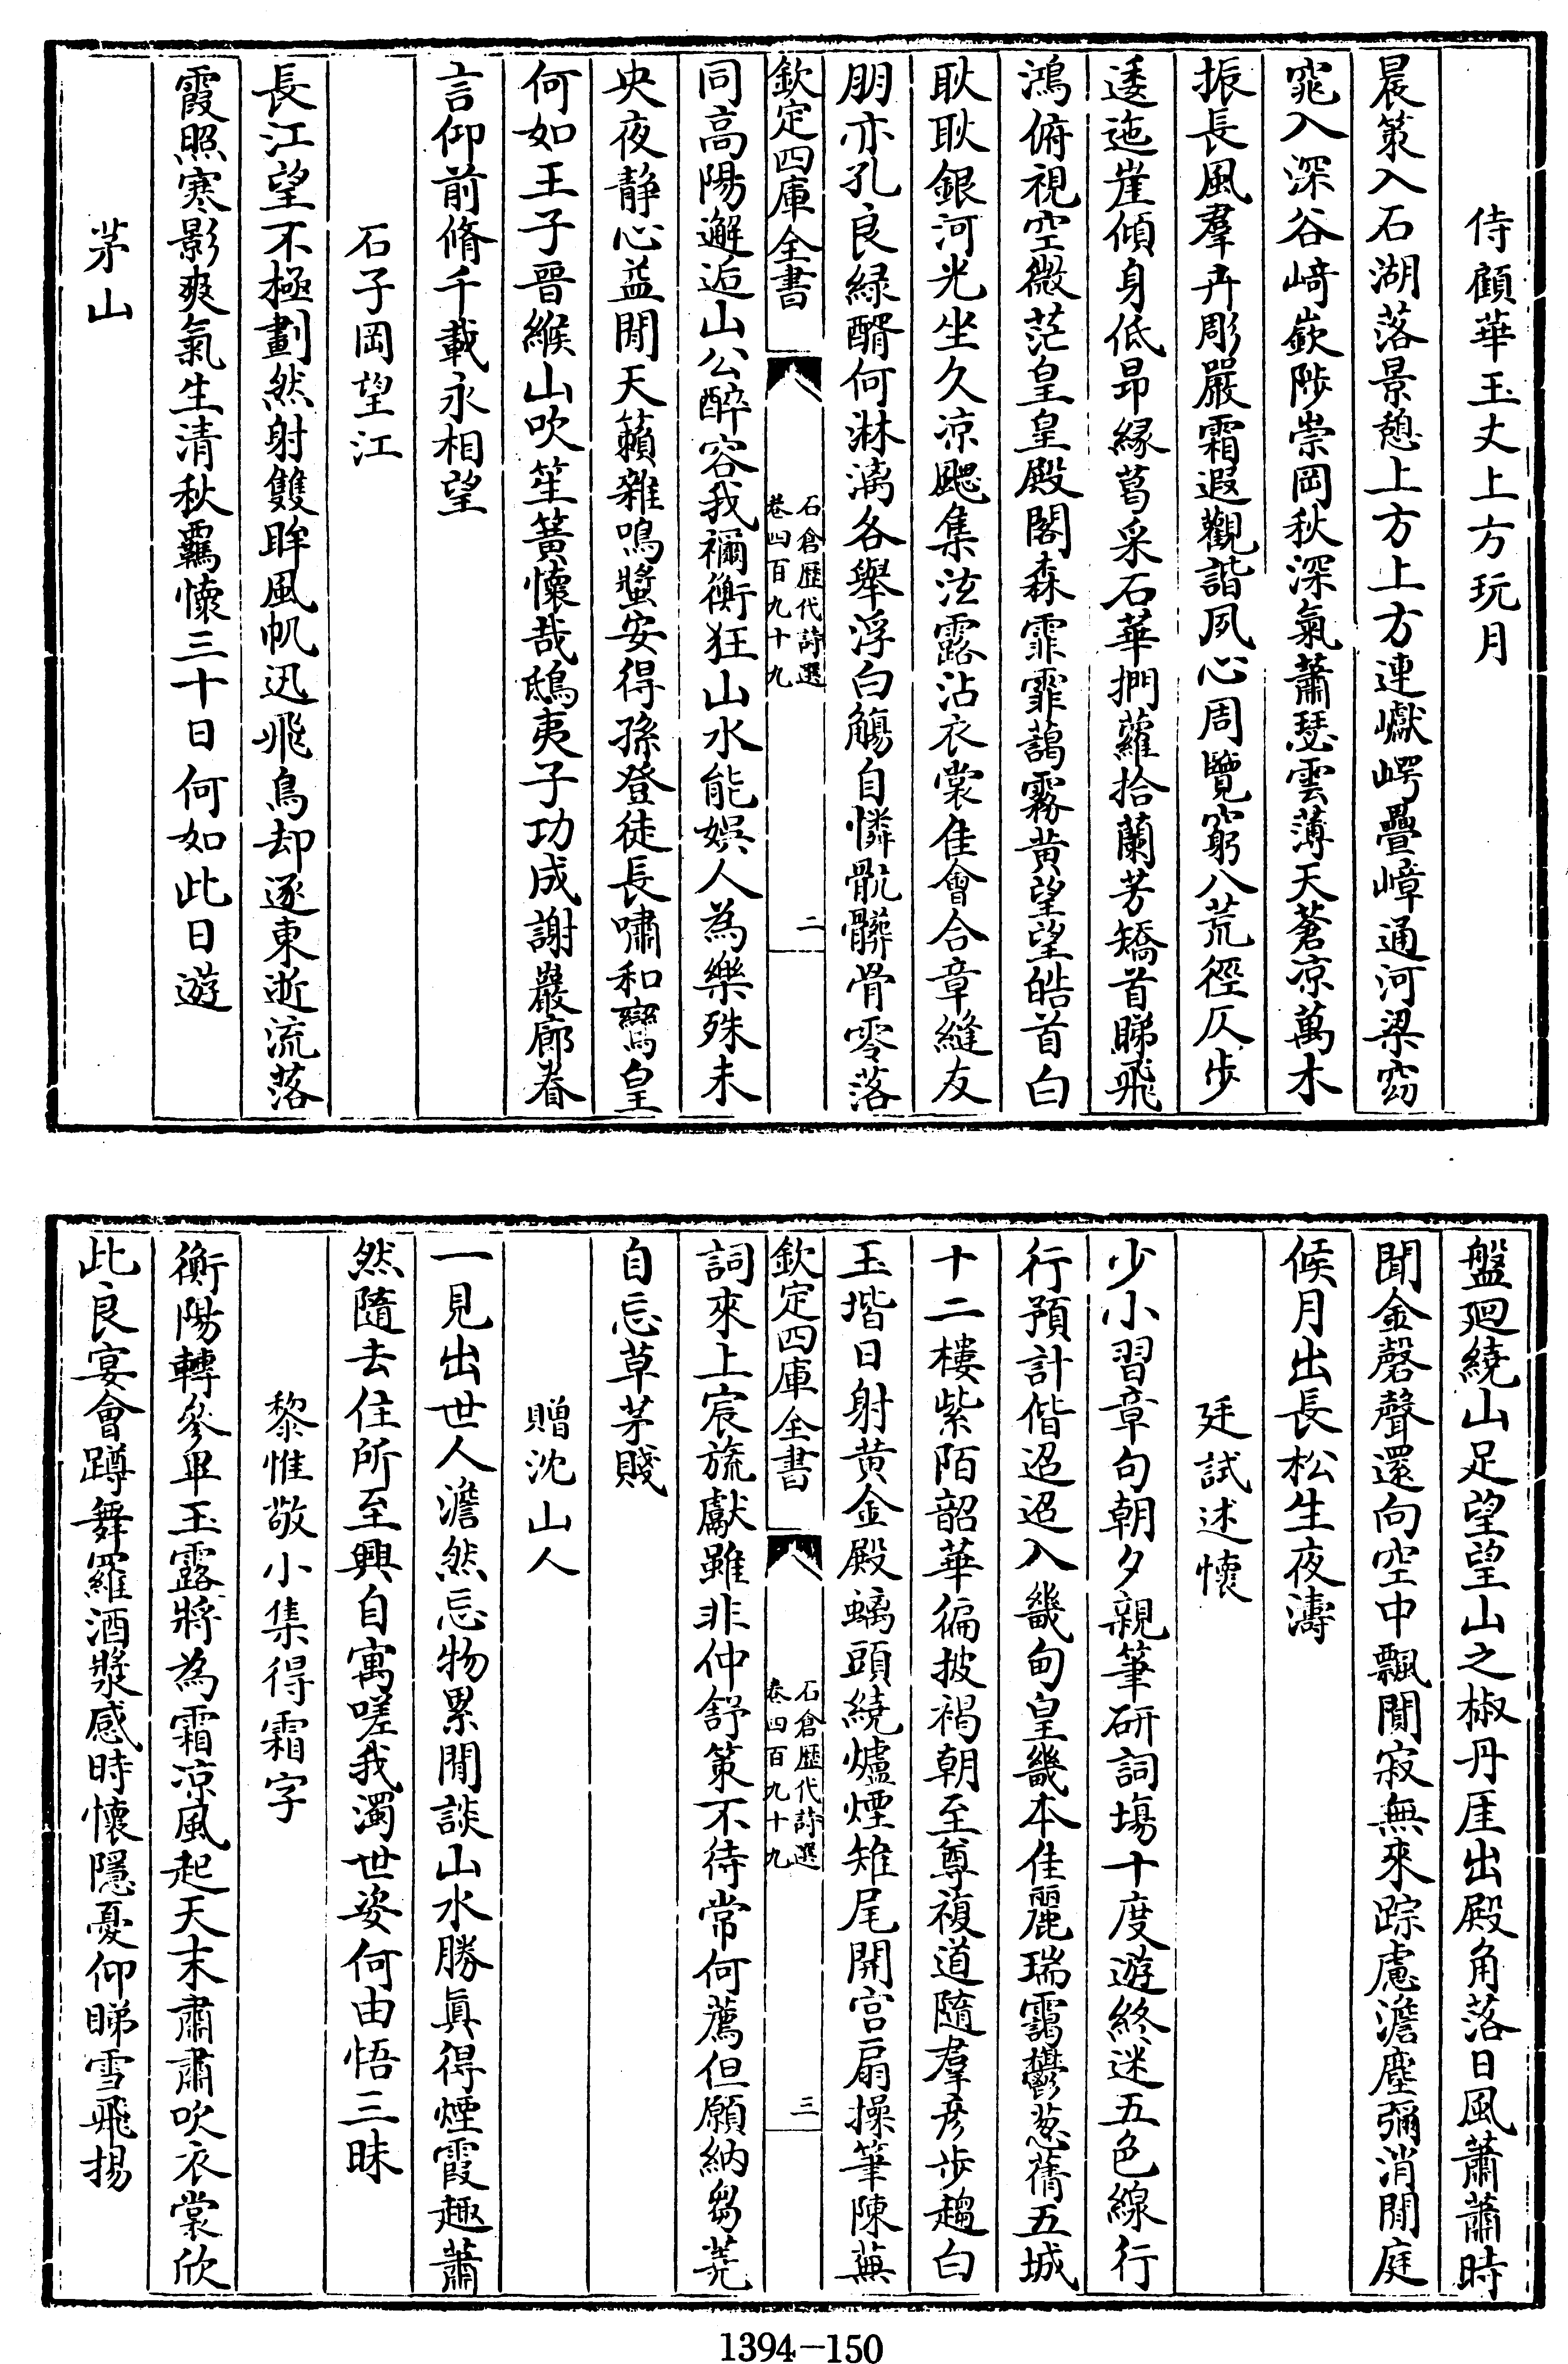 侍顧華玉丈上方玩月
晨策入石湖落景憩上方上方連巘崿疊嶂通河梁窈
窕入深谷﨑嶔陟崇岡秋深氣蕭瑟雲薄天蒼凉萬木
振長風羣卉彫嚴霜遐觀諧夙心周覽窮八荒徑仄步
逶迤崖傾身低昂縁葛采石華捫蘿拾蘭芳矯首睇飛
鴻俯視空微茫皇皇殿閣森霏霏藹霧黄望望皓首白
耿耿銀河光坐久凉颸集泫露沾衣裳佳會合章縫友
朋亦孔良緑醑何淋漓各舉浮白觴自憐骯髒骨零落
欽定四庫全書
石倉歴代詩選
卷四百九十九
二
同高陽邂逅山公醉容我禰衡狂山水能娯人為樂殊未
央夜静心益閒天籟雜鳴螿安得孫登徒長嘯和鸞皇
何如王子晉緱山吹笙簧懐哉鴟夷子功成謝巖廊眷
言仰前脩千載永相望
石子岡望江
長江望不極劃然射雙眸風帆迅飛鳥却逐東逝流落
霞照寒影爽氣生清秋覊懷三十日何如此日遊
茅山
盤廻繞山足望望山之椒丹厓出殿角落日風蕭蕭時
聞金磬聲還向空中飄閴寂無來踪慮澹塵彌消閒庭
候月出長松生夜濤
廷試述懷
少小習章句朝夕親筆研詞塲十度遊終迷五色線行
行預計偕迢迢入畿甸皇畿本佳麗瑞靄鬱葱蒨五城
十二樓紫陌韶華徧披褐朝至尊複道隨羣彦步趨白
玉堦日射黄金殿螭頭繞爐煙雉尾開宫扇操筆陳蕪
欽定四庫全書
石倉歴代詩選
卷四百九十九
三
詞來上宸旒獻雖非仲舒策不待常何薦但願納芻蕘
自忘草茅賤
贈沈山人
一見出世人澹然忘物累閒談山水勝眞得煙霞趣蕭
然隨去住所至興自寓嗟我濁世姿何由悟三昧
黎惟敬小集得霜字
衡陽轉參畢玉露將為霜凉風起天末肅肅吹衣裳欣
此良宴會蹲舞羅酒漿感時懷隱憂仰睇雪飛揚
1394—150